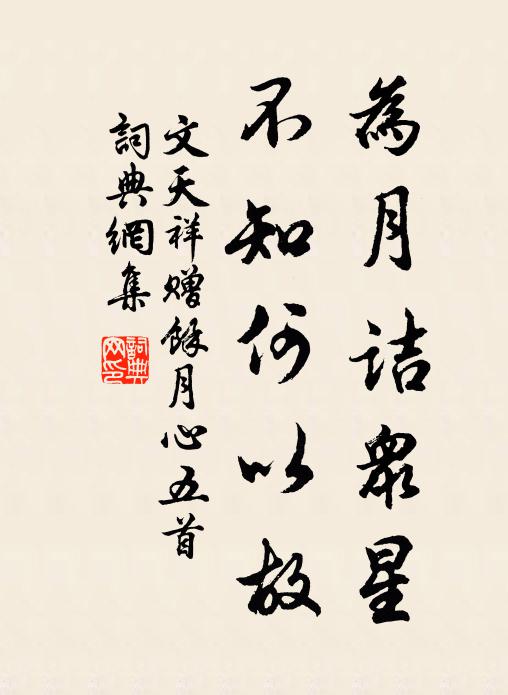 為月詰衆星
不知何以故
文天祥贈餘月心五首
詞典網集
詞典網印